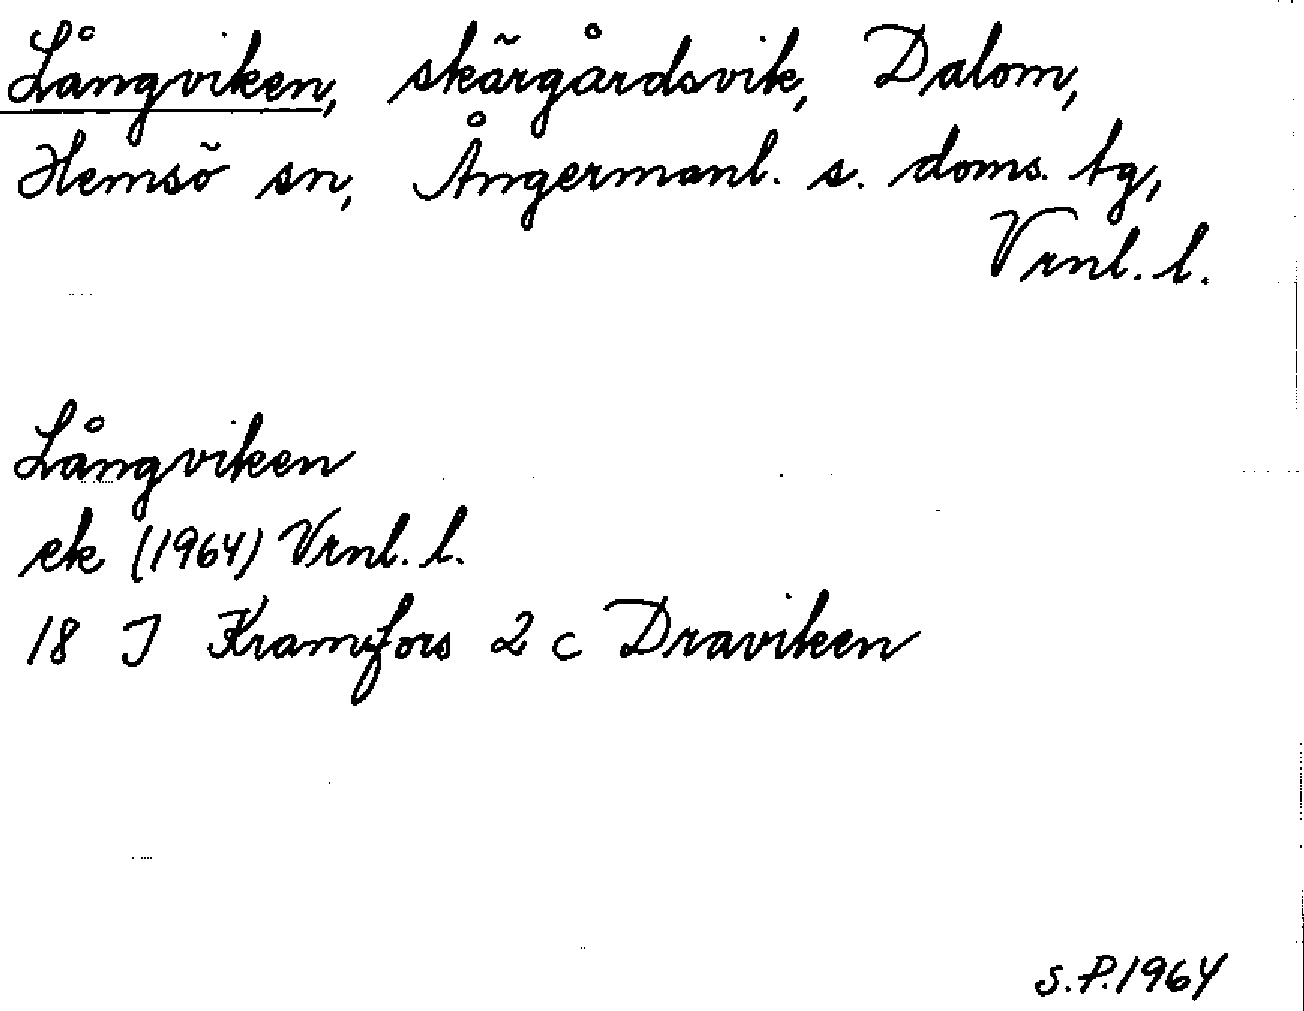 Långviken, skärgårdsvik, Dalom,
Hemsö sn, Ångermanl. s. doms. tg,
Vrnl. l.
Långviken
ek (1964) Vrnl. l.
18 J Kramfors 2 c Draviken
S.P.1964